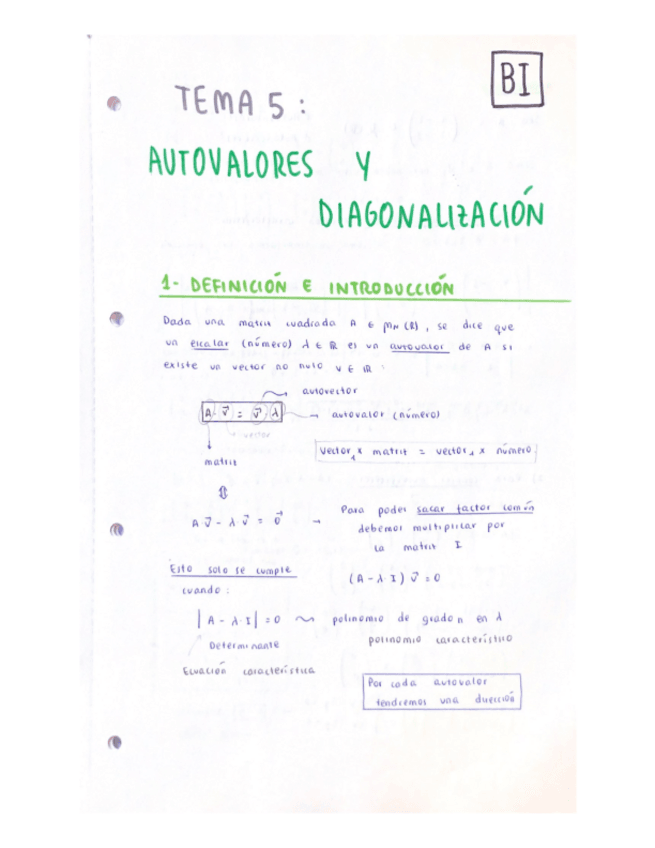 BI
TEMA 5:
AUTOVALORES Y
DIAGONALIZACIÓN
1- DEFINICIÓN E INTRODUCCIÓN
Dada una matriz cuadrada A ∈ Mn (R), se dice que
un escalar (número) λ ∈ R es un autovalor de A si
existe un vector no nulo v ∈ R :
autovector
A · v⃗ = v⃗ λ → autovalor (número)
vector
matriz
Vector₁ x matriz = vector₁ x número
⇕
A v⃗ - λ v⃗ = 0⃗ →
Para poder sacar factor común
debemos multiplicar por
la matriz I
Esto solo se cumple
cuando:
(A - λ · I) v⃗ = 0
|A - λ · I| = 0 ⤳ polinomio de grado n en λ
polinomio característico
Determinante
Ecuación característica
Por cada autovalor
tendremos una dirección